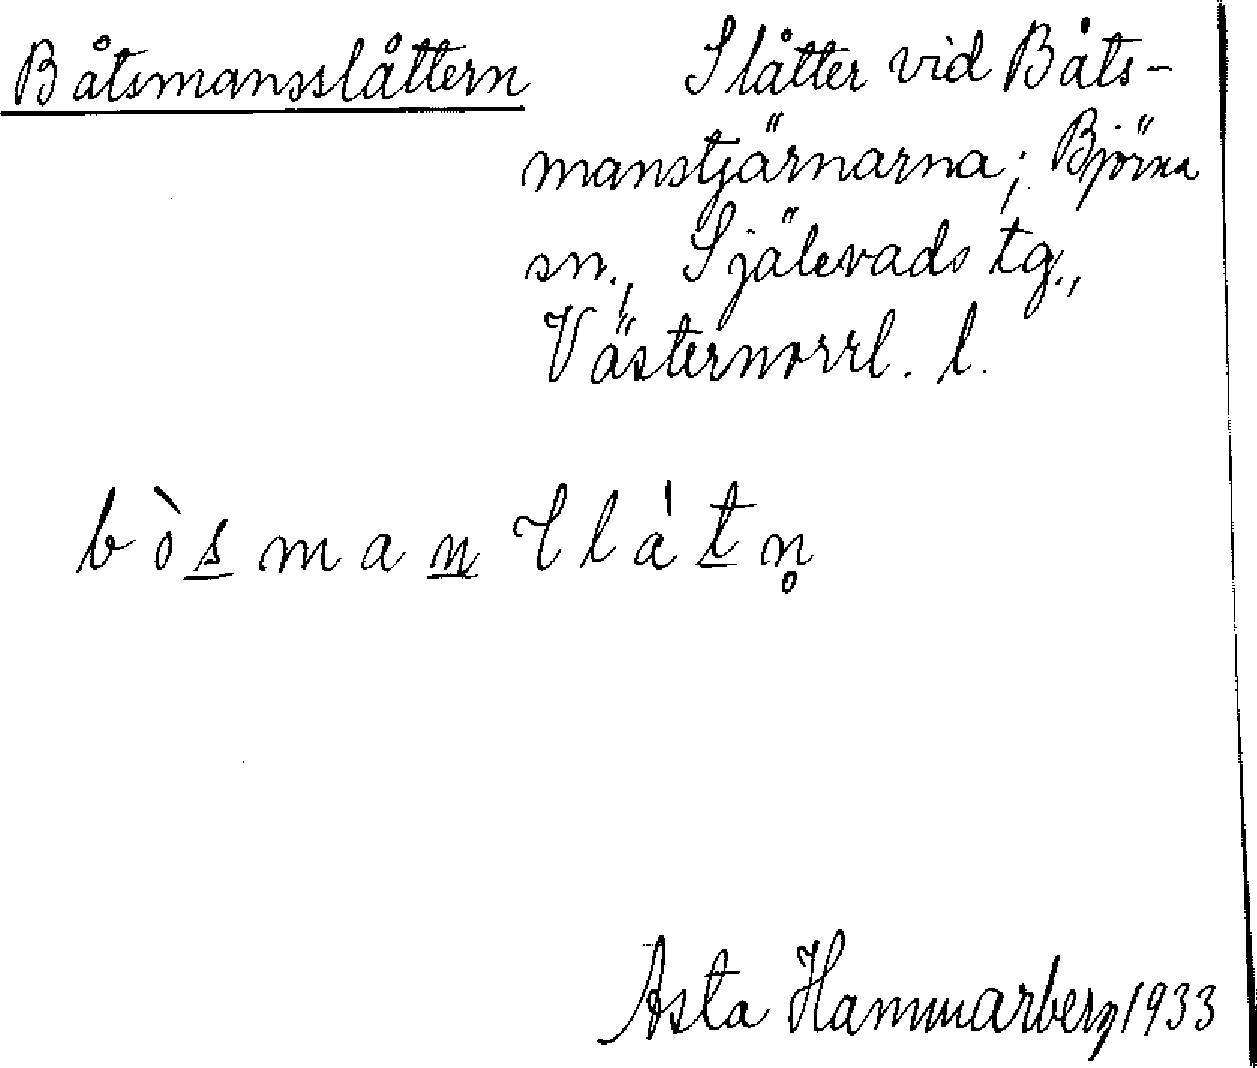 Båtsmansslåttern Slåtter vid Båts-
manstjärnarna; Björna
sn., Själevads tg.,
Västernorrl. l.
Asta Hammarberg 1933